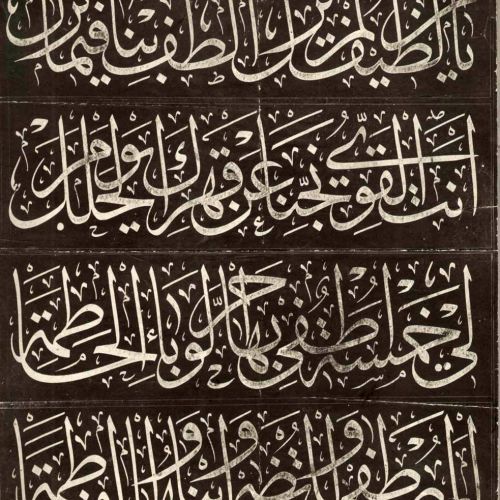 يا لطيفا لم يزل الطف بنا فيما نزل
انت القوي نجنا عن قهرك يوم الخلل
لي خمسة اطفي بها حر الوباء الحاطمة
المصطفى والمرتضى وابناهما والفاطمة